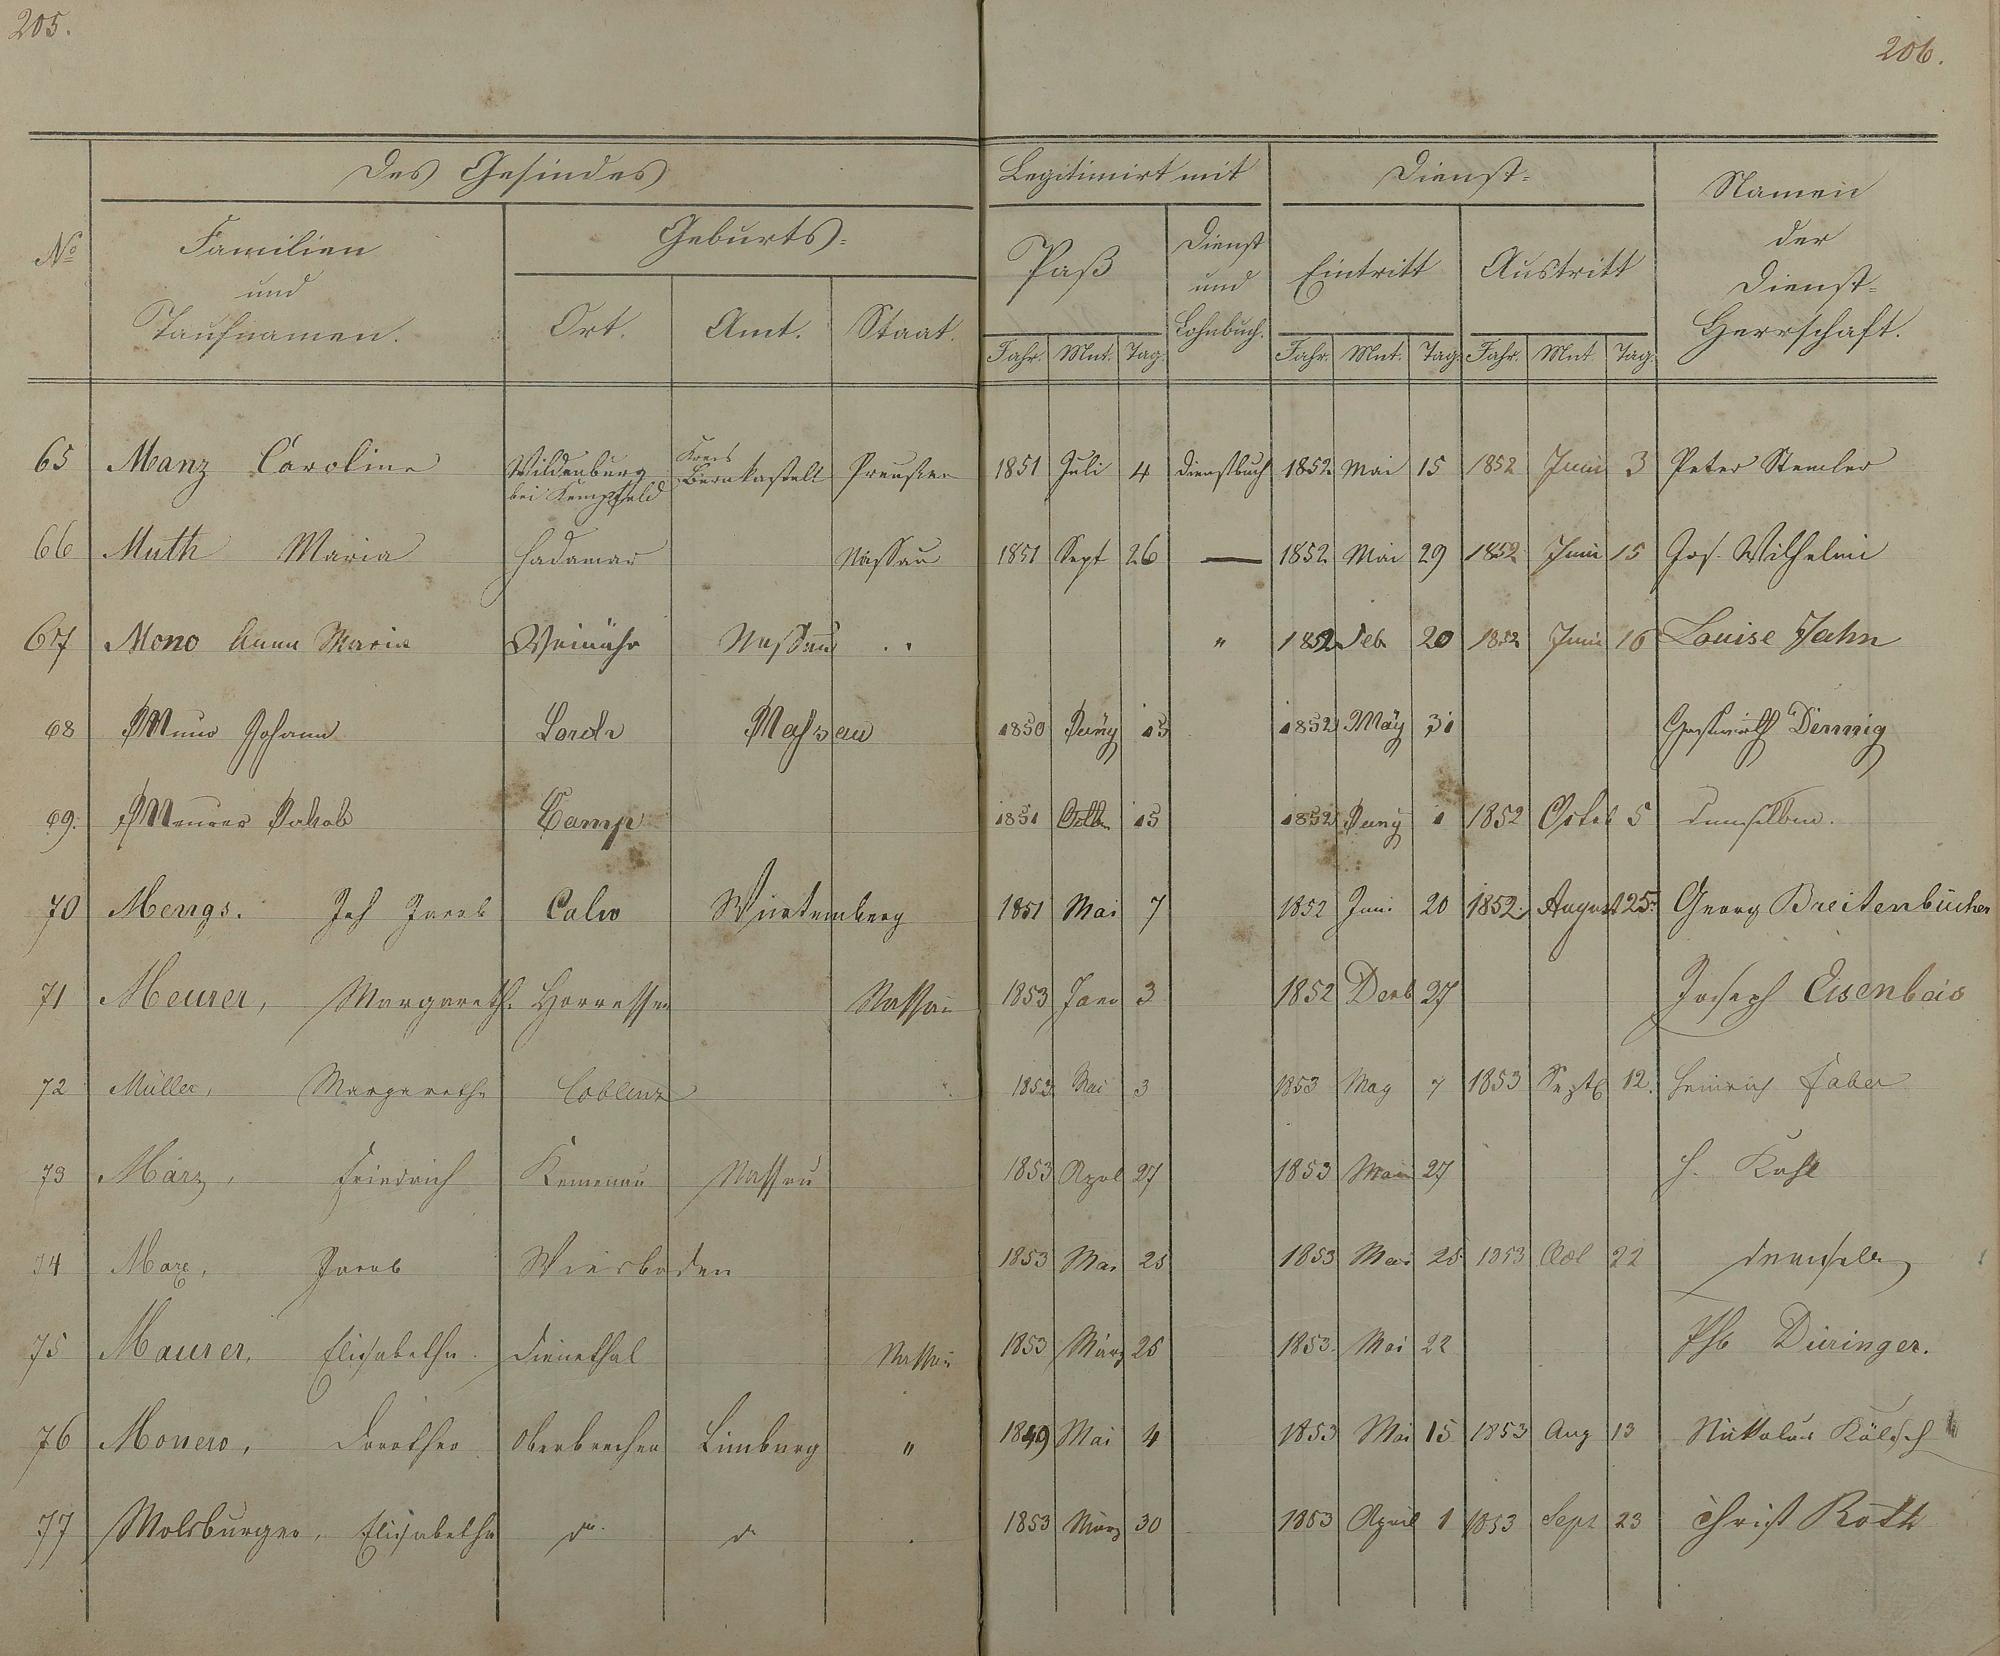 205.
206.
Des Gesindes
Legitimirt mit
Dienst-
Namen der Dienst-Herrschaft.
No
Familien und Taufnamen.
Geburts-
Paß
Dienst und Lohnbuch.
Eintritt
Austritt
Ort.
Amt.
Staat.
Jahr. Mnt. Tag. Jahr. Mnt. Tag. Jahr. Mnt. Tag.
65 Manz Caroline Wildenburg bei Kempfeld Kreis Bernkastell Preußen 1851 Juli 4 Dienstbuch 1852 Mai 15 1852 Juni 3 Peter Stemler
66 Muth Maria Hadamar Nassau 1851 Sept 26 — 1852 Mai 29 1852 Juni 15 Jos. Wilhelmi
67 Mono Anna Maria Weinähr Nassau " 1852 Feb 20 1852 Juni 16 Louise Jahn
68 Johann Lorch Nassau 1850 Juny 15 1852 May 31 Gastwirth
69. Meurer Jakob Camp 1851 15 1852 Juny 1 1852 Octob 5 demselben.
70 Mengs. Joh Jacob Calw Würtemberg 1851 Mai 7 1852 Juni 20 1852. August 25. Georg Breitenbücher
71 Meurer, Margareth. Horressen Nassau 1853 Janr 3 1852 Decb 27 Joseph Eisenbeis
72 Müller, Margarethe Coblenz 1853. Mai 3 1853 May 7 1853 Septb 12. Heinrich Faber
73 März, Friedrich Kemenau Nassau 1853 April 27 1853 27 H.
74 Marx, Jacob Wiesbaden 1853 Mai 25 1853 Mai 25 1853 Oct 22 demselben
75 Maurer, Elisabetha. Dienethal Nassau 1853 März 25 1853. Mai 22 Phs Düringer.
76 Dorothea Oberbrechen Limburg " 1849 Mai 4 1853 Mai 15 1853 Aug 13 Nikolaus Kölsch
77 Molsburger, Elisabetha do. do 1853 März 30 1853 April 1 1853 Sept 23 Christ Roth